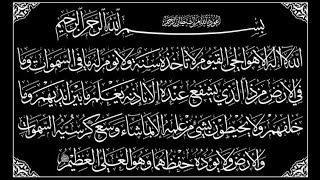 اعوذ بالله من الشيطان الرجيم
بسم الله الرحمن الرحيم
الله لا اله الا هو الحي القيوم لا تأخذه سنة ولا نوم له ما في السموات وما
في الارض من ذا الذي يشفع عنده الا باذنه يعلم ما بين ايديهم وما
خلفهم ولا يحيطون بشيء من علمه الا بما شاء وسع كرسيه السموات
والارض ولا يؤده حفظهما وهو العلي العظيم